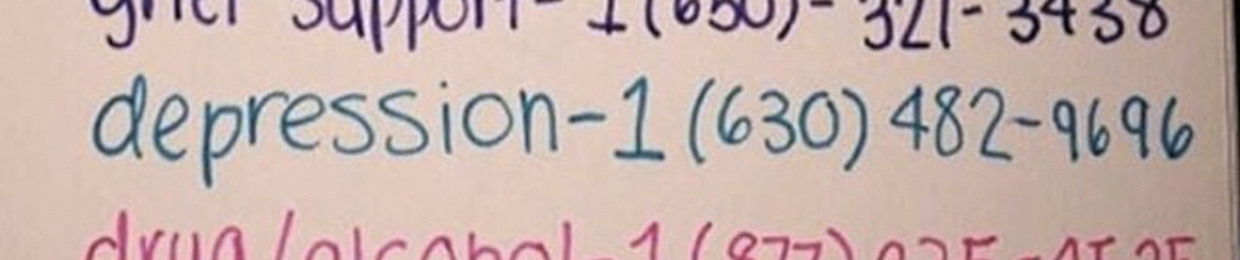 grief support-1(650)-321-3438
depression-1(630) 482-9696
drug/alcohol-1(877)